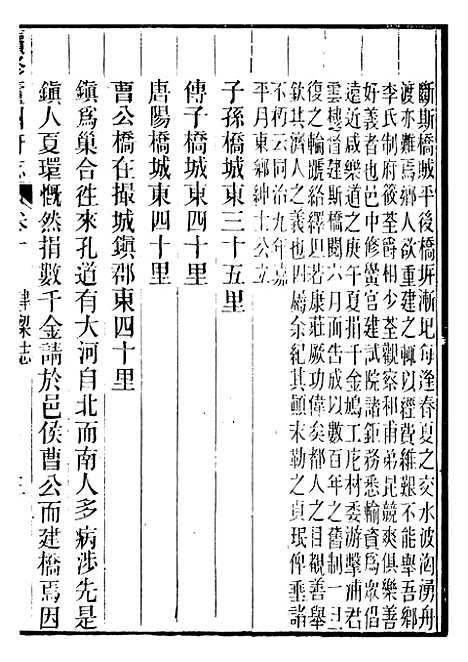 斷斯橋城平後橋圻漸圮每逢春夏之交水波洶湧舟
渡亦難焉鄉人欲重建之輒以經費維艱不能舉吾鄉
李氏制府筱荃爵相少荃觀察和甫弟昆競爽俱樂善
好義者也邑中修黌官建試院諸鉅務悉輸資爲眾倡
遠近咸樂道之庚午夏捐千金鳩工庀材委游擊浦君
雲樓督建斯橋閱六月而告成以數百年之舊制一旦
復之輪號給繹巨康莊厥功偉矣都人之目覩善舉
欽其濟人之義也囑余紀其顛末勒之貞珉俾垂諸
不朽云同治九年嘉
平月東鄉紳士公立
子孫橋城東三十五里
傅子橋城東四十里
唐陽橋城東四十里
曹公橋在撮城鎮郡東四十里
鎮爲巢合徃來孔道有大河自北而南人多病涉先是
鎮人夏環慨然捐數千金請於邑侯曹公而建橋焉因
續修廬州府志
卷十
津梁志